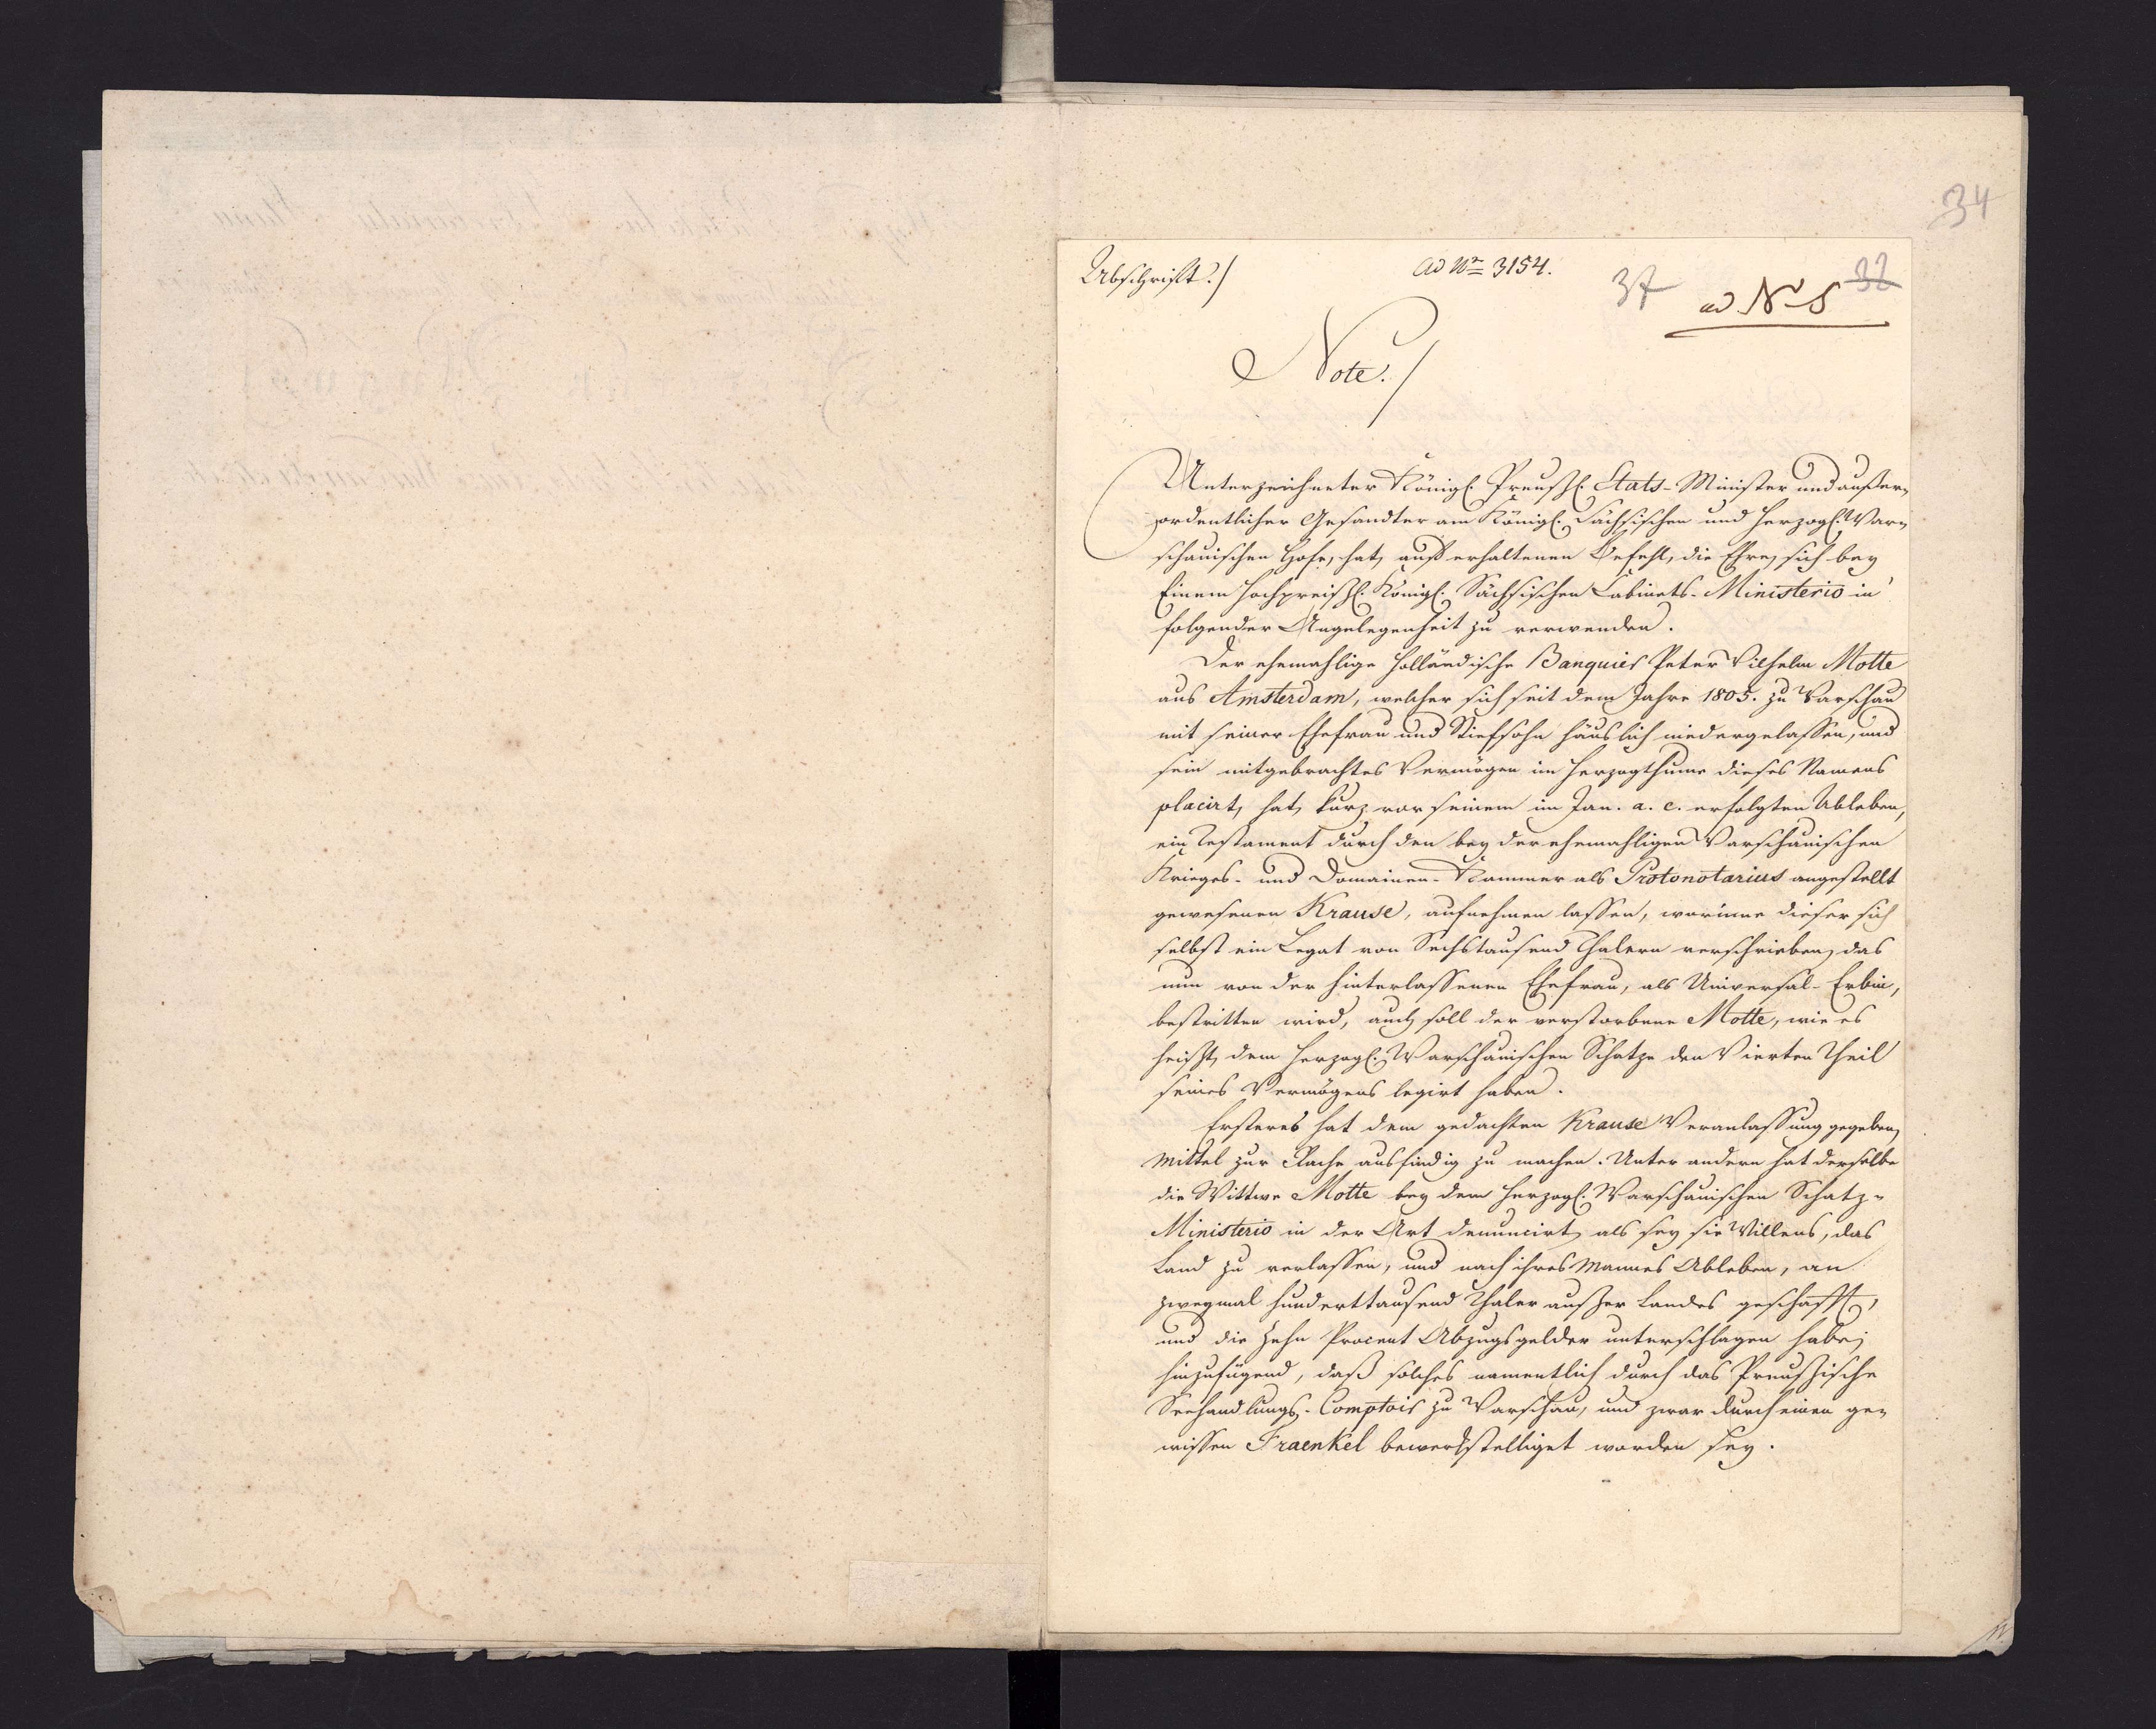 34
Abschrift./
ad Nr 3154.
37
ad No 8
32
Note./
Unterzeichneter Königl. Preußl. Stats-Minister und außer-
ordentlicher Gesandter am Königl. Sächsischen und Herzogl. War-
schauischen Hofe, hat, auf erhaltenen Befehl, die Ehre, sich bey
Einem Hochpreißl. Königl. Sächsischen Cabinets-Ministerio in
folgender Angelegenheit zu verwenden.
Der ehemahlige holländische Banquier Peter Wilhelm Motte
aus Amsterdam, welcher sich seit dem Jahre 1805. zu Warschau
mit seiner Ehefrau und Stiefsohn häuslich niedergelassen, und
sein mitgebrachtes Vermögen im Herzogthume dieses Namens
placirt, hat, kurz vor seinem im Jan. a. c. erfolgten Ableben,
ein Testament durch den bey der ehemahligen Warschauischen
Krieges- und Domainen-Kammer als Protonotarius angestellt
gewesenen Krause, aufnehmen lassen, worinne dieser sich
selbst ein Legat von Sechstausend Thalern verschrieben, das
nun von der hinterlassenen Ehefrau, als Universal-Erbin,
bestritten wird, auch soll der verstorbene Motte, wie es
heißt, dem Herzogl. Warschauischen Schatze den Vierten Theil
seines Vermögens legirt haben.
Ersteres hat dem gedachten Krause Veranlassung gegeben,
Mittel zur Rache ausfindig zu machen. Unter andern hat derselbe
die Wittwe Motte bey dem Herzogl. Warschauischen Schatz-
Ministerio in der Art denuncirt, als sey sie Willens, das
Land zu verlassen, und nach ihres Mannes Ableben, an
zweymal hunderttausend Thaler außer Landes geschafft,
und die Zehn Procent Abzugsgelder unterschlagen habe;
hinzufügend, daß solches namentlich durch das Preußische
Seehandlungs-Comptoir zu Warschau, und zwar durch einen ge-
wissen Fraenkel bewerkstelliget worden sey.